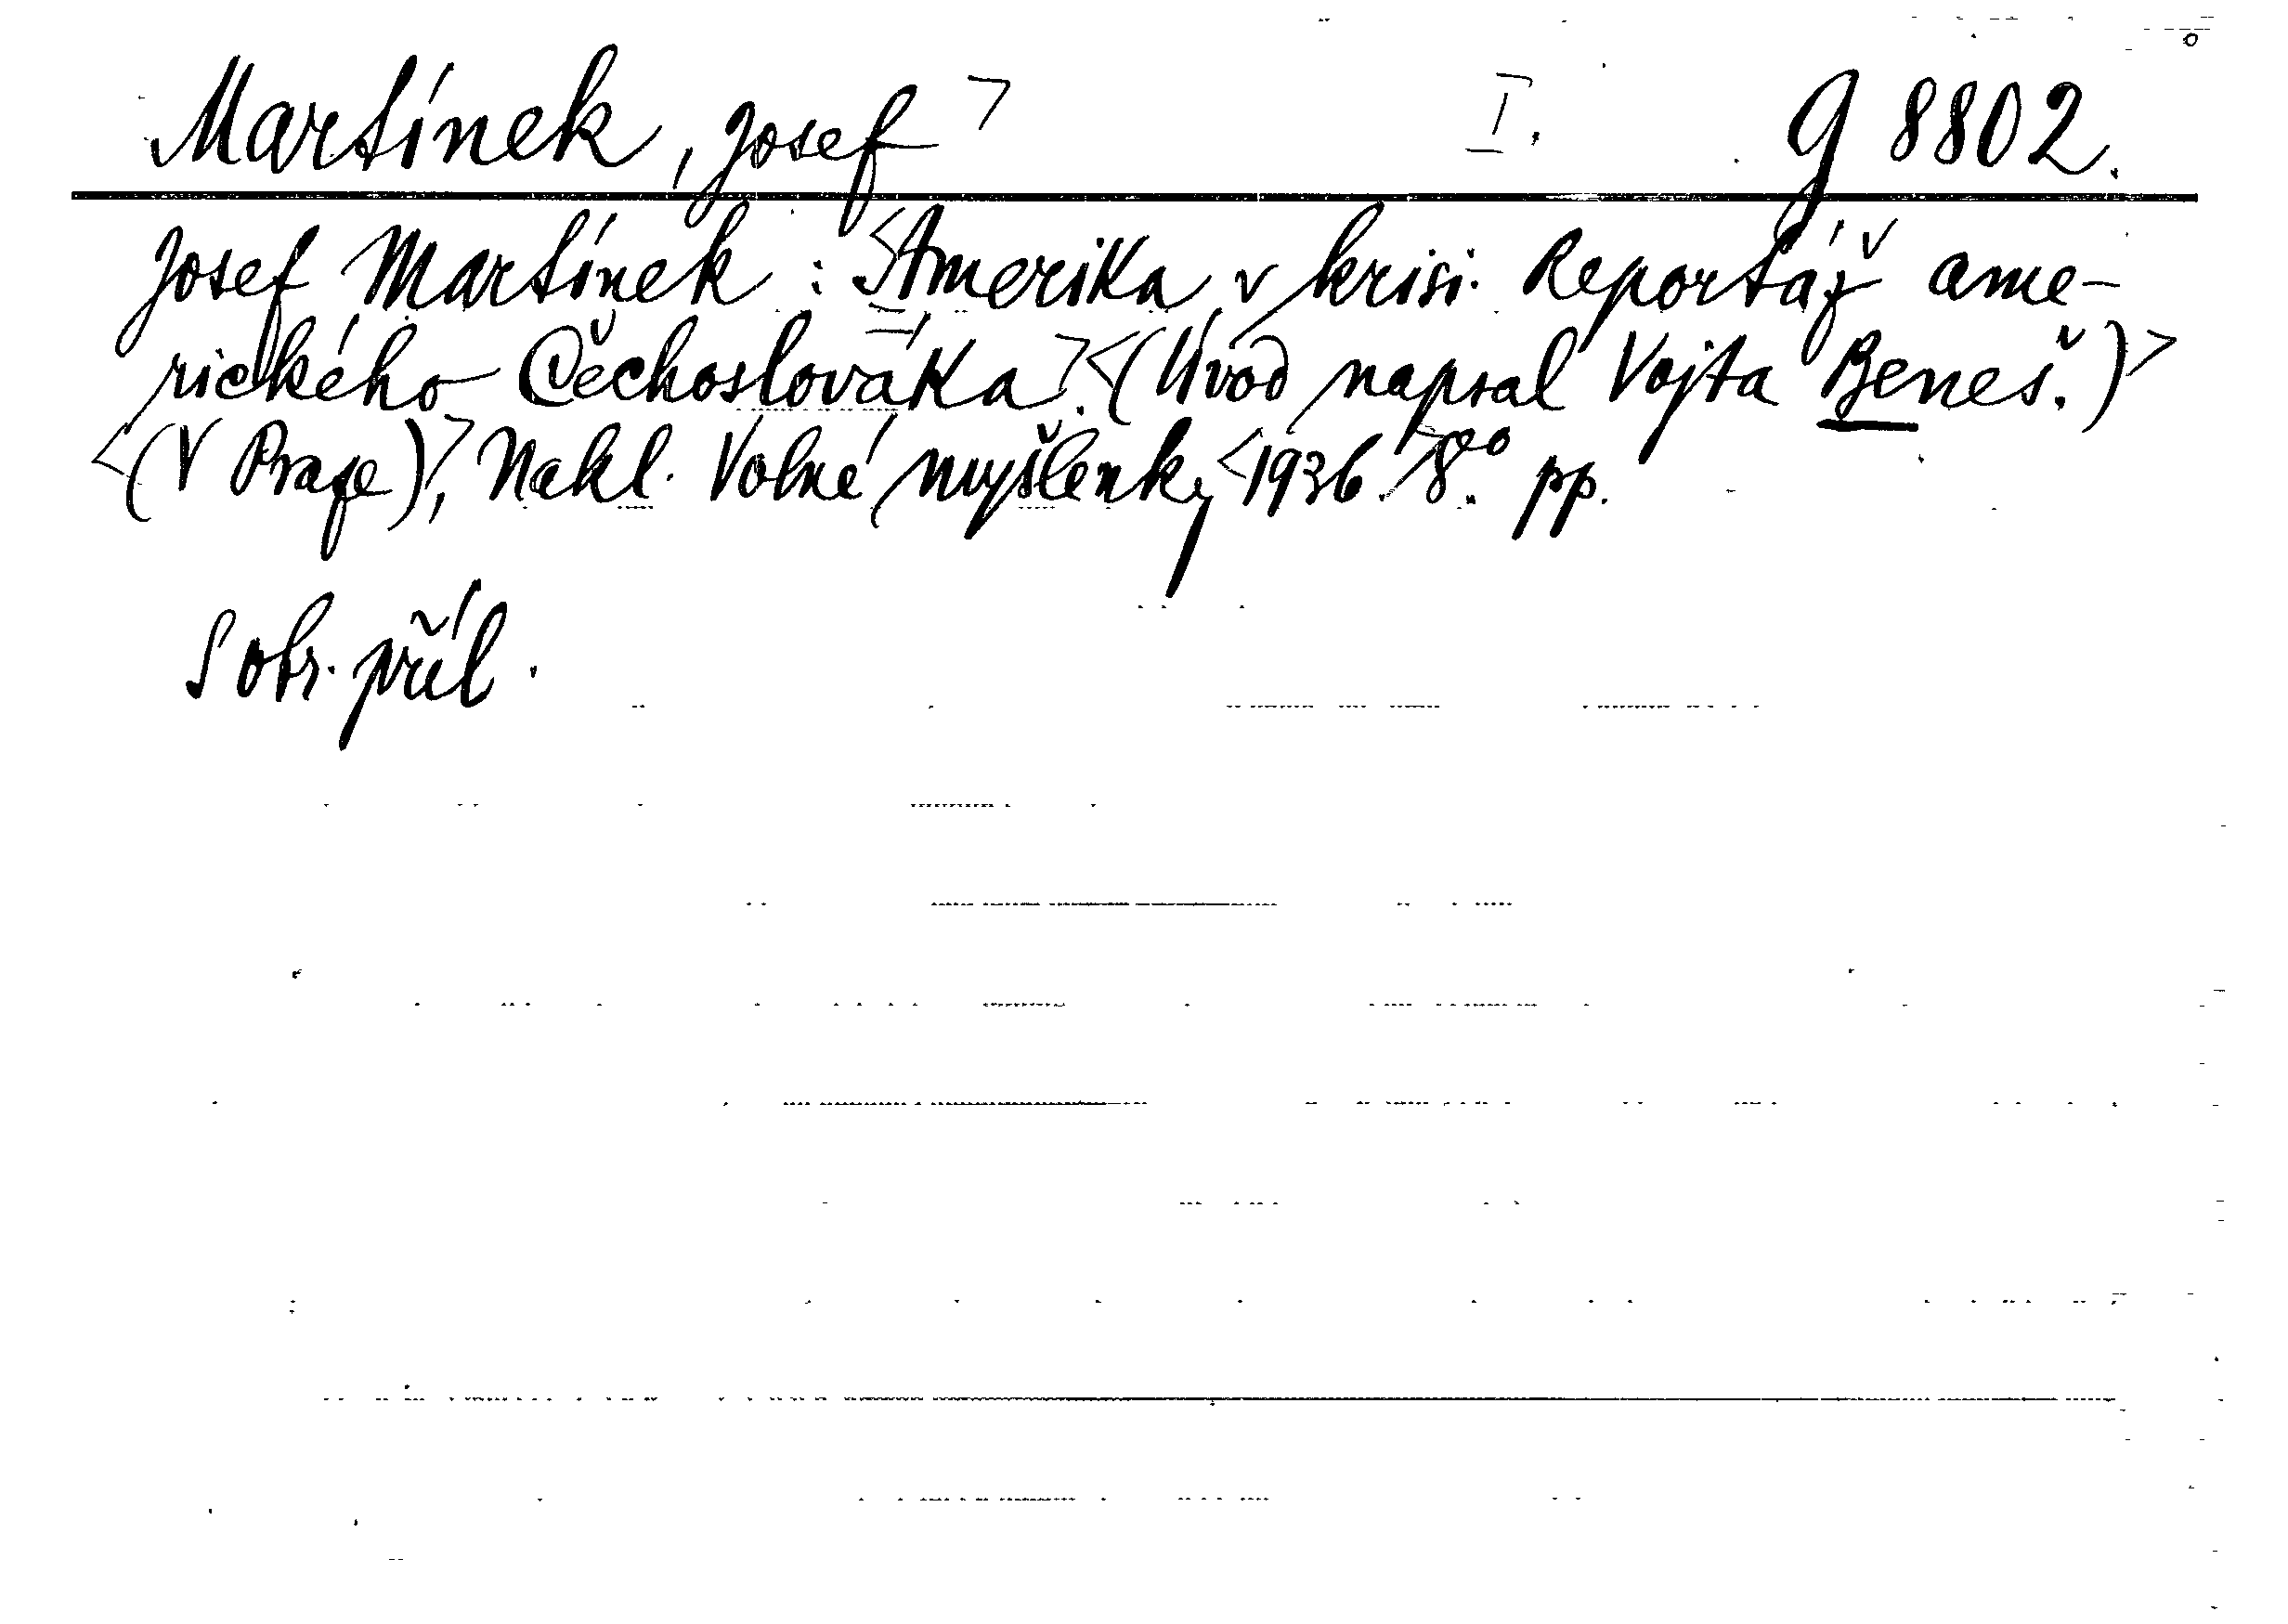 Martínek, Josef I. g 8802.
Josef Martínek: Amerika v krisi. Reportáž ame-
rického Čechoslováka. (Úvod napsal Vojta Beneš.)
(V Praze), Nakl. Volné myšlenky 1936. 8° pp.
S obr. příl.